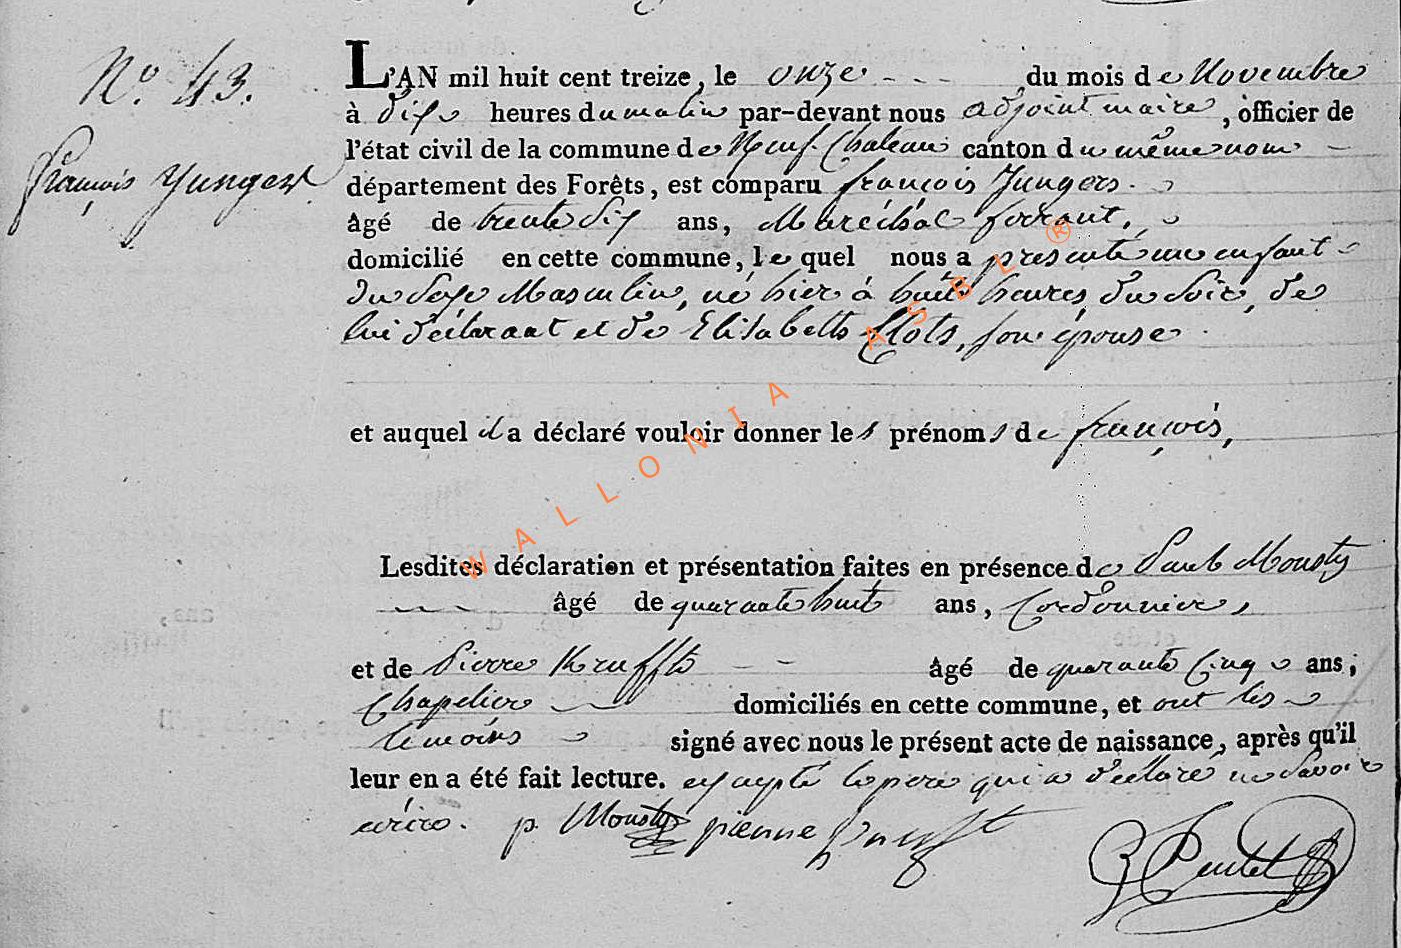 N.º 43.
François Jungers
L'AN mil huit cent treize, le onze du mois de Novembre
à dix heures du matin par-devant nous adjoint maire, officier de
l'état civil de la commune de Neuf-Chateau canton du même nom
département des Forêts, est comparu françois Jungers.
âgé de trente six ans, Maréchal ferrant,
domicilié en cette commune, le quel nous a présenté un enfant
du Sexe Masculin, né hier à huit heures du Soir, de
lui déclarant et de Elisabeth Clots, son épouse.
et auquel il a déclaré vouloir donner les prénoms de françois,
Lesdites déclaration et présentation faites en présence de Paul Mousty
âgé de quarante huit ans, Cordonnier,
et de Pierre Krufft âgé de quarante Cinq ans;
Chapelier domiciliés en cette commune, et ont les
témoins signé avec nous le présent acte de naissance, après qu'il
leur en a été fait lecture. excepté le pere qui a déclaré ne Savoir
écrire. p. Mousty pierre
WALLONIA ASBL ®